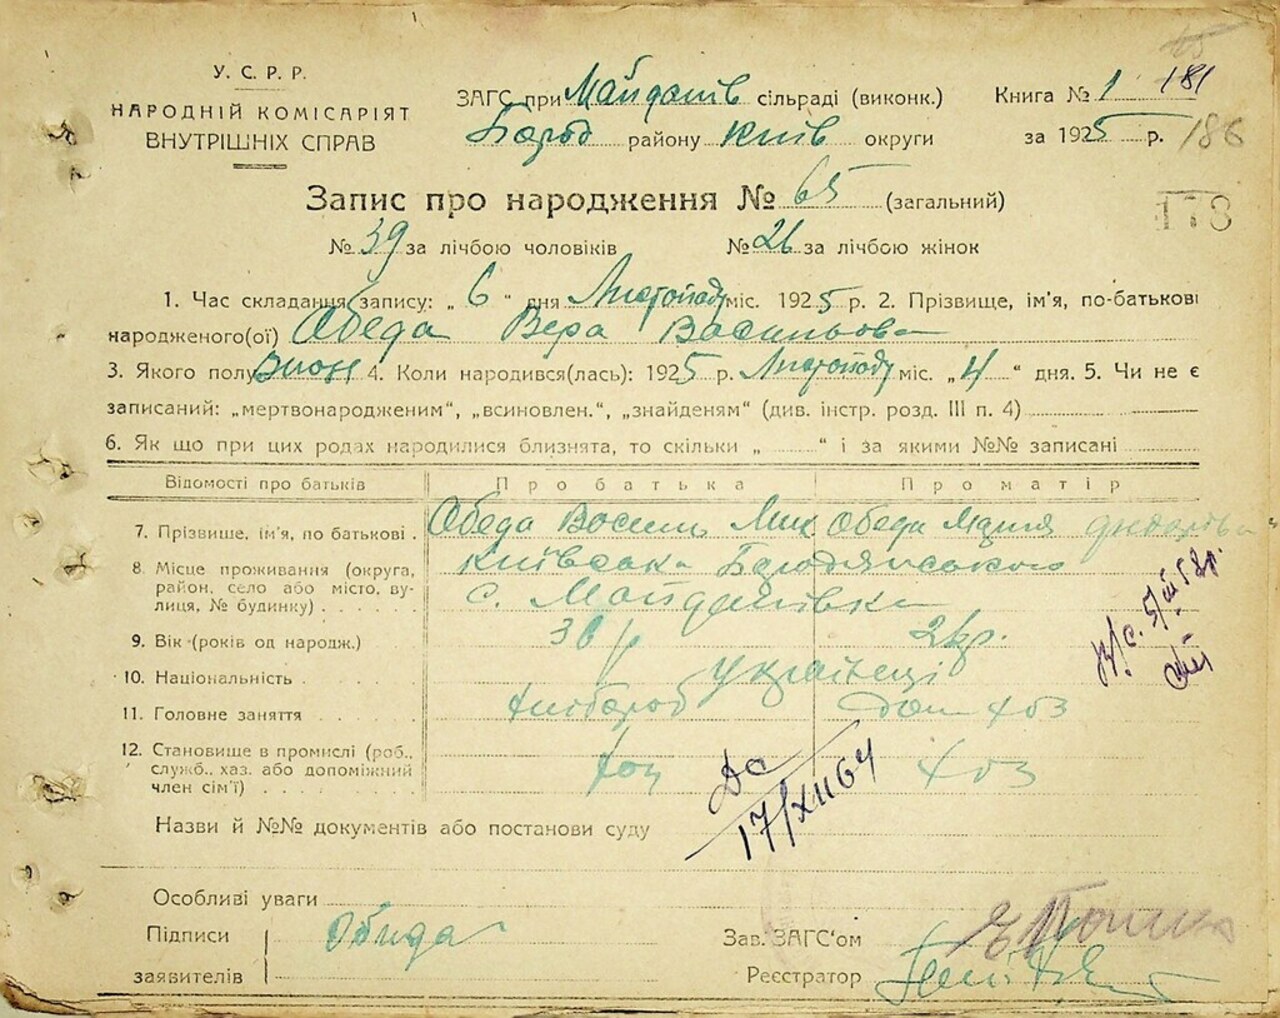 У. С. Р. Р.
НАРОДНІЙ КОМІСАРІЯТ
ВНУТРІШНІХ СПРАВ
ЗАГС при Майданів сільраді (виконк.)
Бород району Київ округи
Книга № 1 181
за 1925 р. 186
178
Запис про народження № 65 (загальний)
№ 39 за лічбою чоловіків № 26 за лічбою жінок
1. Час складання запису: „ 6 “ дня Листопаду міс. 1925 р. 2. Прізвище, ім’я, по-батькові
народженого(ої) Обеда Вера Васильова
3. Якого полу жіон 4. Коли народився(лась): 1925 р. Листопаду міс. „ 4 “ дня. 5. Чи не є
записаний: „мертвонародженим“, „всиновлен.“, „знайденям“ (див. інстр. розд. III п. 4)
6. Як що при цих родах народилися близнята, то скільки „ “ і за якими №№ записані
Відомості про батьків Про батька Про матір
7. Прізвище, ім’я, по батькові . Обеда Василь Мик Обеда Марія
8. Місце проживання (округа, Київська Бородянського
район, село або місто, ву-
лиця, № будинку) . . . . . с. Майданівка
9. Вік (років од народж.)
10. Національність . . . . . українці
11. Головне заняття . . . . . хлібороб дом хоз
12. Становище в промислі (роб.,
служб., хаз. або допоміжний хоз
член сім’ї) . . . . . . . .
Н/с. 5/III 58р.
Дс
17/XII 64
Назви й №№ документів або постанови суду
Особливі уваги
Підписи Обида
заявителів
Зав. ЗАГС‘ом
Реєстратор